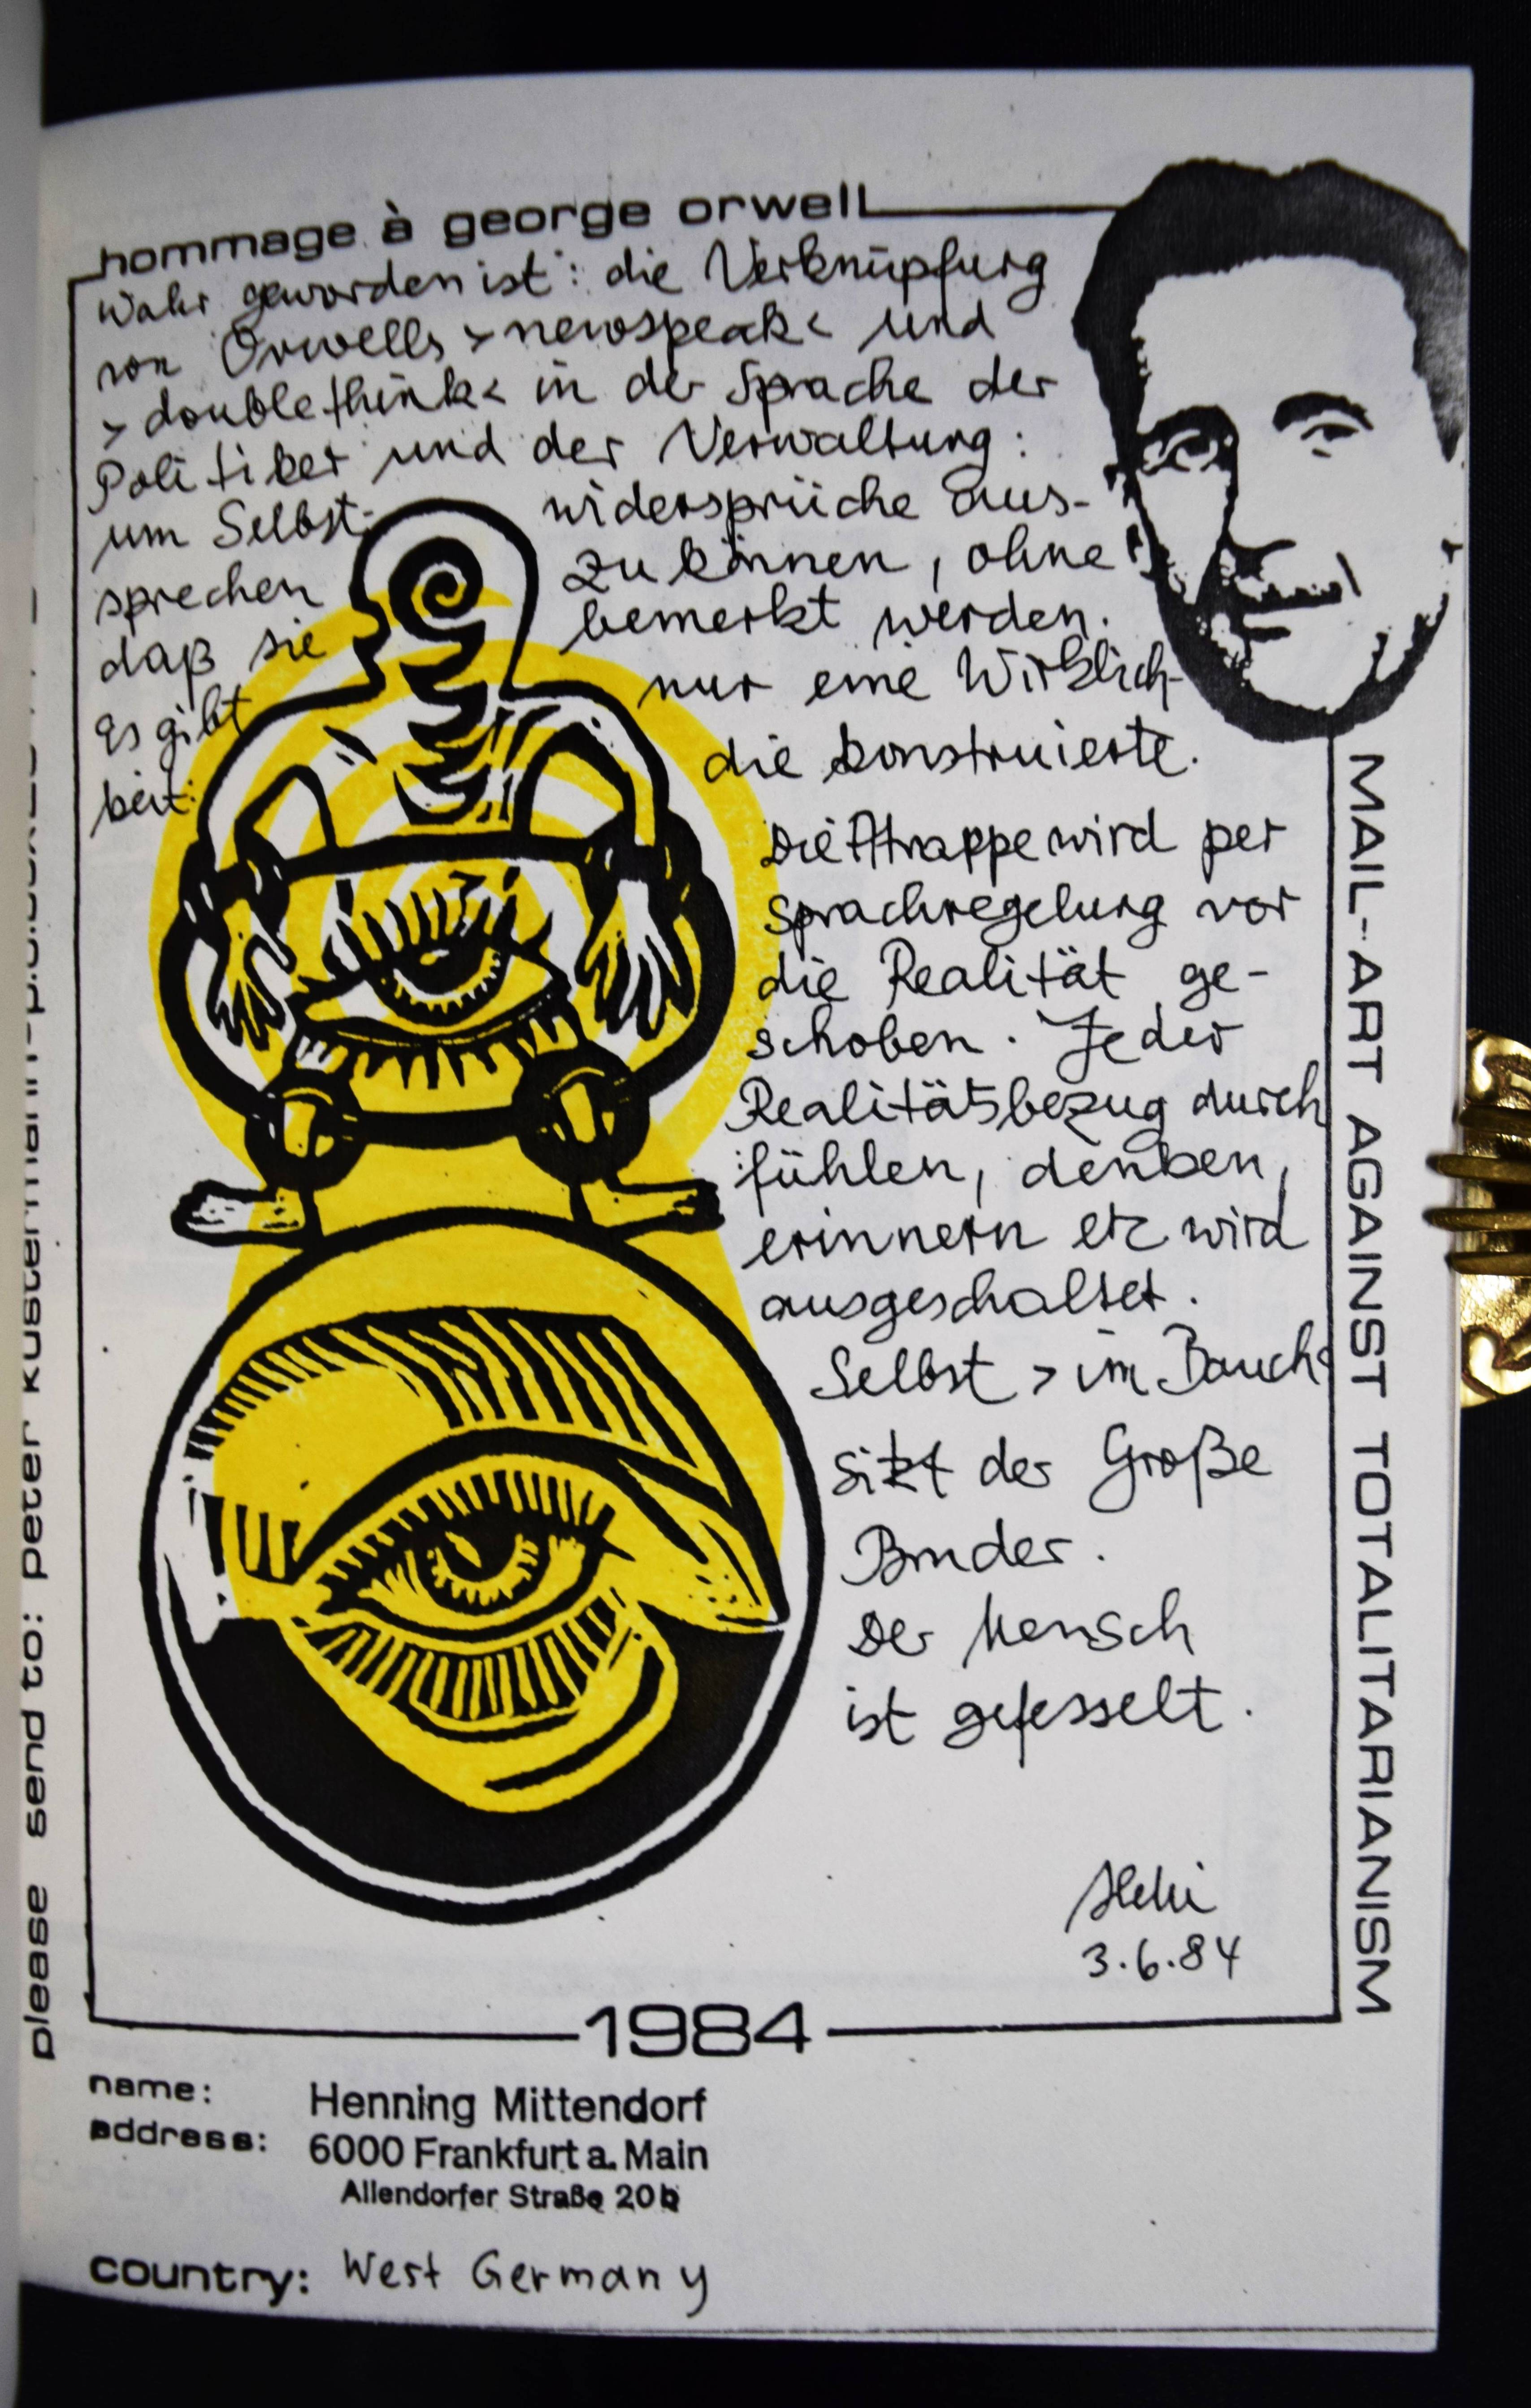 hommage à george orwell
Wahr geworden ist: die Verknüpfung
von Orwells >newspeak< und
>doublethink< in der Sprache der
Politiker und der Verwaltung:
um Selbst- widersprüche aus-
sprechen zu können, ohne
daß sie bemerkt werden.
Es gibt nur eine Wirklich-
keit: die konstruierte.
Die Attrappe wird per
Sprachregelung vor
die Realität ge-
schoben. Jeder
Realitätsbezug durch
fühlen, denken,
erinnern etc wird
ausgeschaltet.
Selbst >im Bauch<
sitzt der Große
Bruder.
Der Mensch
ist gefesselt.
3.6.84
MAIL-ART AGAINST TOTALITARIANISM
1984
please send to: peter kustermann-p.o.box
name: Henning Mittendorf
address: 6000 Frankfurt a. Main
Allendorfer Straße 20b
country: West Germany